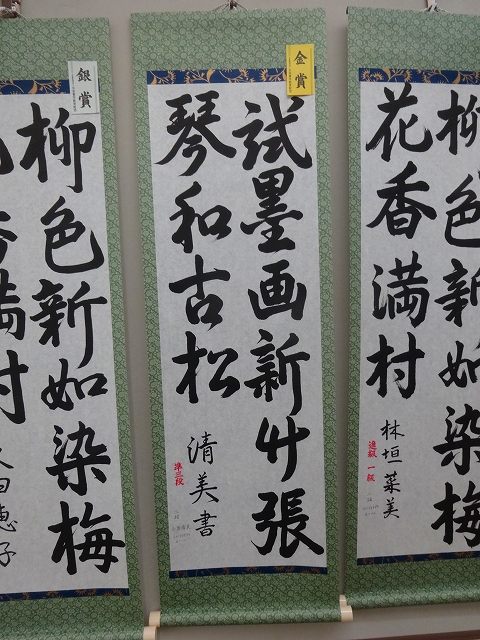 花香満村
柳色新如染梅
林垣菜美
進級 一級
金賞
試墨画新竹張
琴和古松
清美書
準三段
銀賞
柳色新如染梅
香満村
田恵子